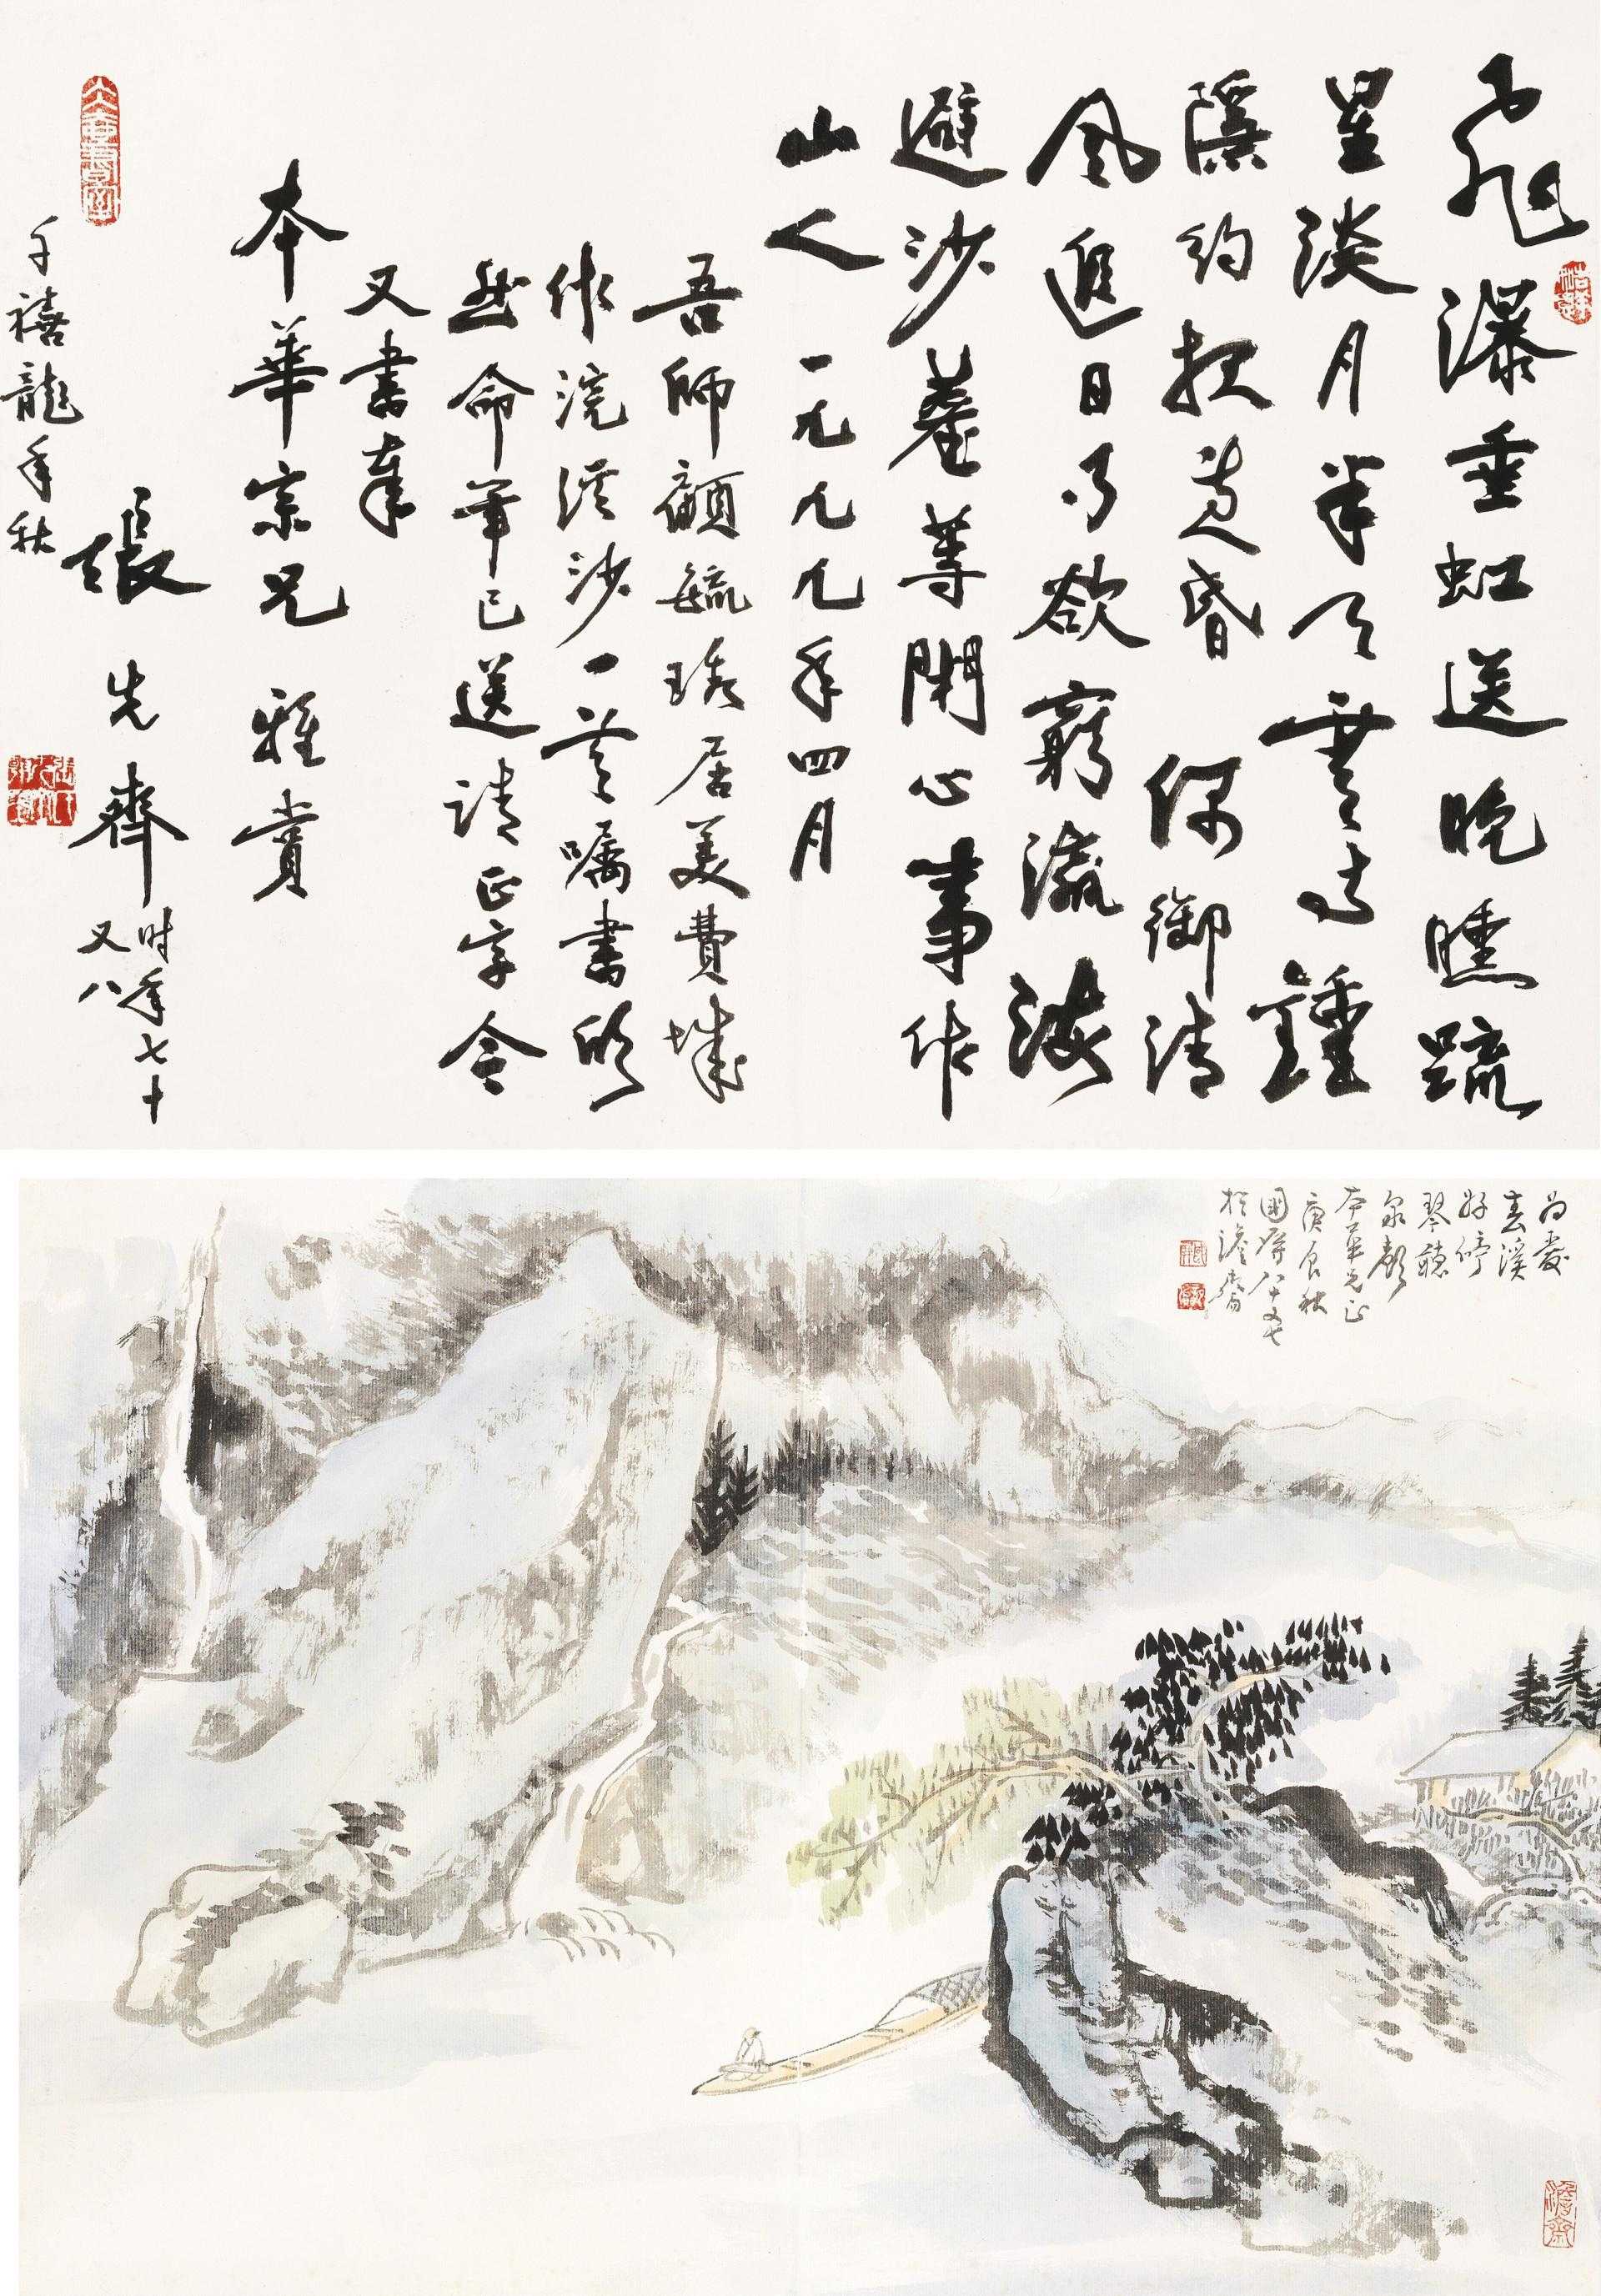 飛瀑垂虹送晚曛疏
星淡月半天雲寺鐘
隱約報黃昏 偶御清
風追日月欲窮瀛海
避沙塵等閑心事作
山人 一九九九年四月
吾師顧毓琇居美費城
作浣溪沙一首囑書欣
然命筆已送請正字今
又書奉
本華宗兄 雅賞
張先齊 時年七十
又八
千禧龍年秋
為愛
春溪
好停
琴聽
泉
本華兄正
庚辰秋
八十又七
於澹齋
澹齋